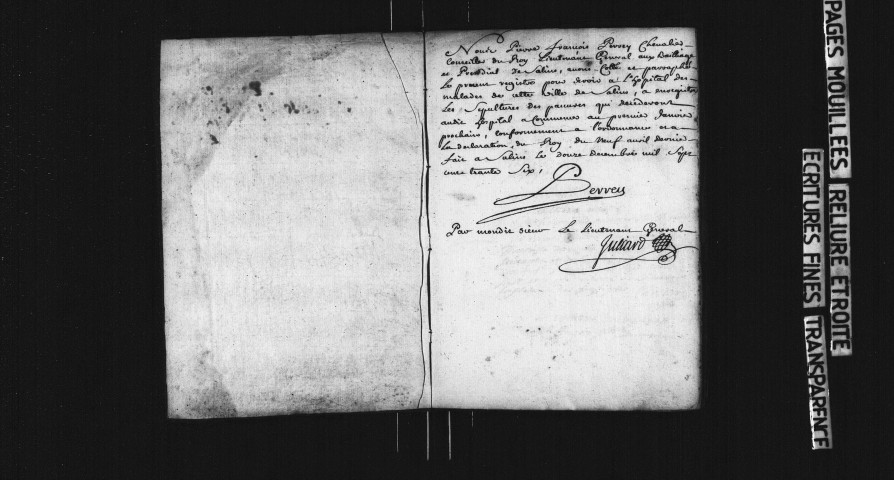 Nous Pierre François Perrey Chevalier
Conseiller du Roy Lieutenant General aux Bailliage
et Presidial de Salins, avons Cotté et paraphé
Le present registre pour servir a l'hopital des
malades de cette ville de Salins, a enregistrer
Les Sepultures des pauvres qui decederont
audit hopital a Commencer au premier Janvier
prochain, conformement a l'ordonnance et a
La declaration du Roy du Neuf avril dernier
fait a Salins le douze decembre mil sept
cent trente Six,
Perrey
Par mondit sieur Le Lieutenant General
PAGES MOUILLEES RELIURE ETROITE
ECRITURES FINES TRANSPARENCE